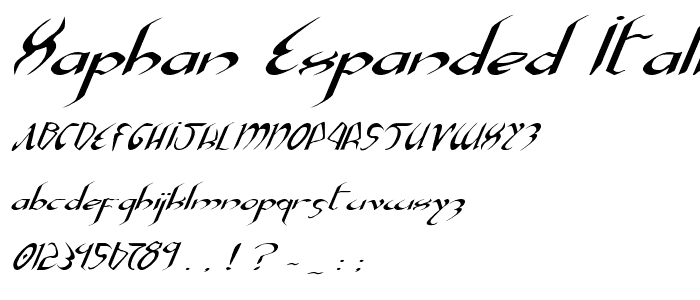 Xaphan Expanded Ital
ABCDEFGHIJKLMNOPQRSTUVWXYZ
abcdefghijklmnopqrstuvwxyz
0123456789 . , ! ? - _ : ;